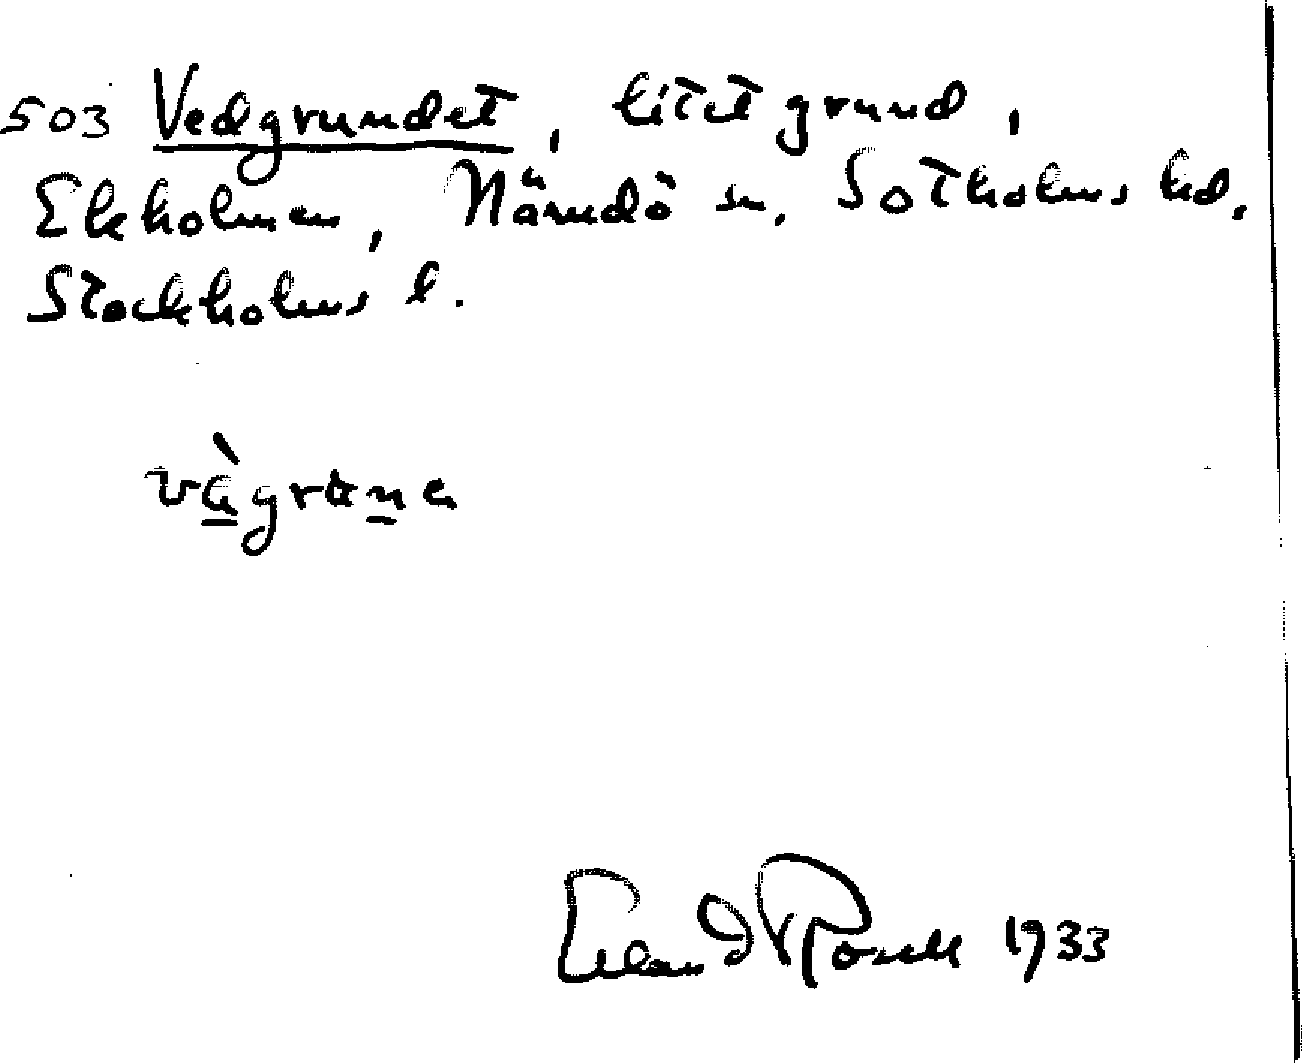 503 Vedgrundet, litet grund,
Ekholmen, Nämdö sn, Sotholms hd.
Stockholms l.
vàgrųna
Erland Rosell 1933